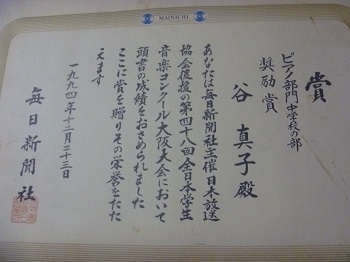 MAINICHI
賞
ピアノ部門中学校の部
奨励賞
谷真子殿
あなたは毎日新聞社主催日本放送
協会後援の第四十八回全日本学生
音楽コンクール大阪大会において
頭書の成績をおさめられました
ここに賞を贈りその栄誉をたた
えます
一九九四年十二月二十三日
毎日新聞社